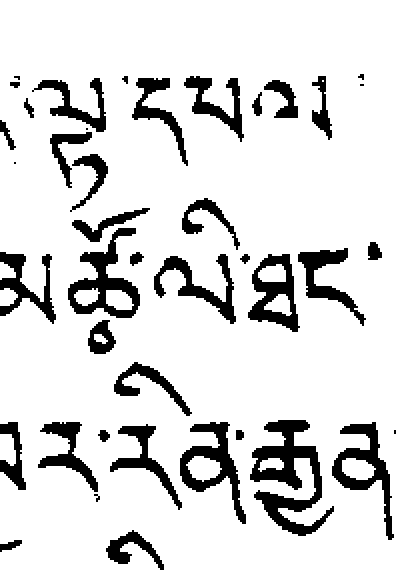 ལྟ་དཔལ
མཚོ་ལི་ཐང་
ར་རིན་རྒྱན